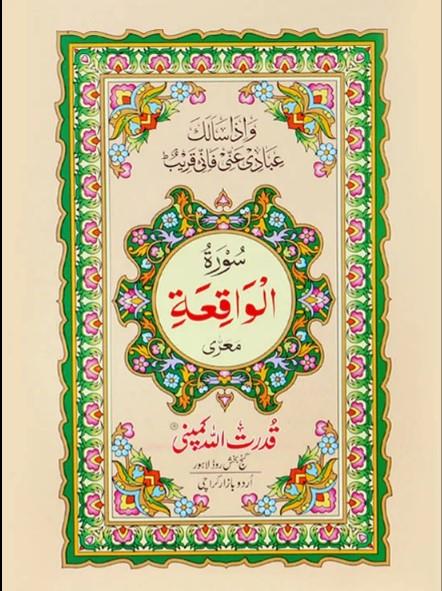 وَاِذَا سَاَلَكَ
عِبَادِیْ عَنِّیْ فَاِنِّیْ قَرِیْبٌ ؕ
سُوْرَةُ
الْوَاقِعَةِ
مَعرّٰی
قُدرت اللہ کمپنی
گنج بخش روڈ لاہور
اُردو بازار کراچی